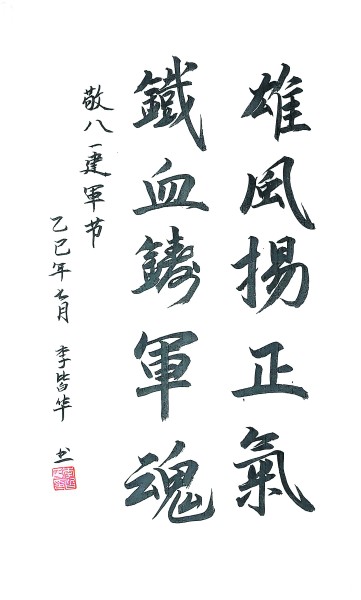 雄風揚正氣
鐵血鑄軍魂
敬八一建軍节
乙巳年七月 李皆华 书